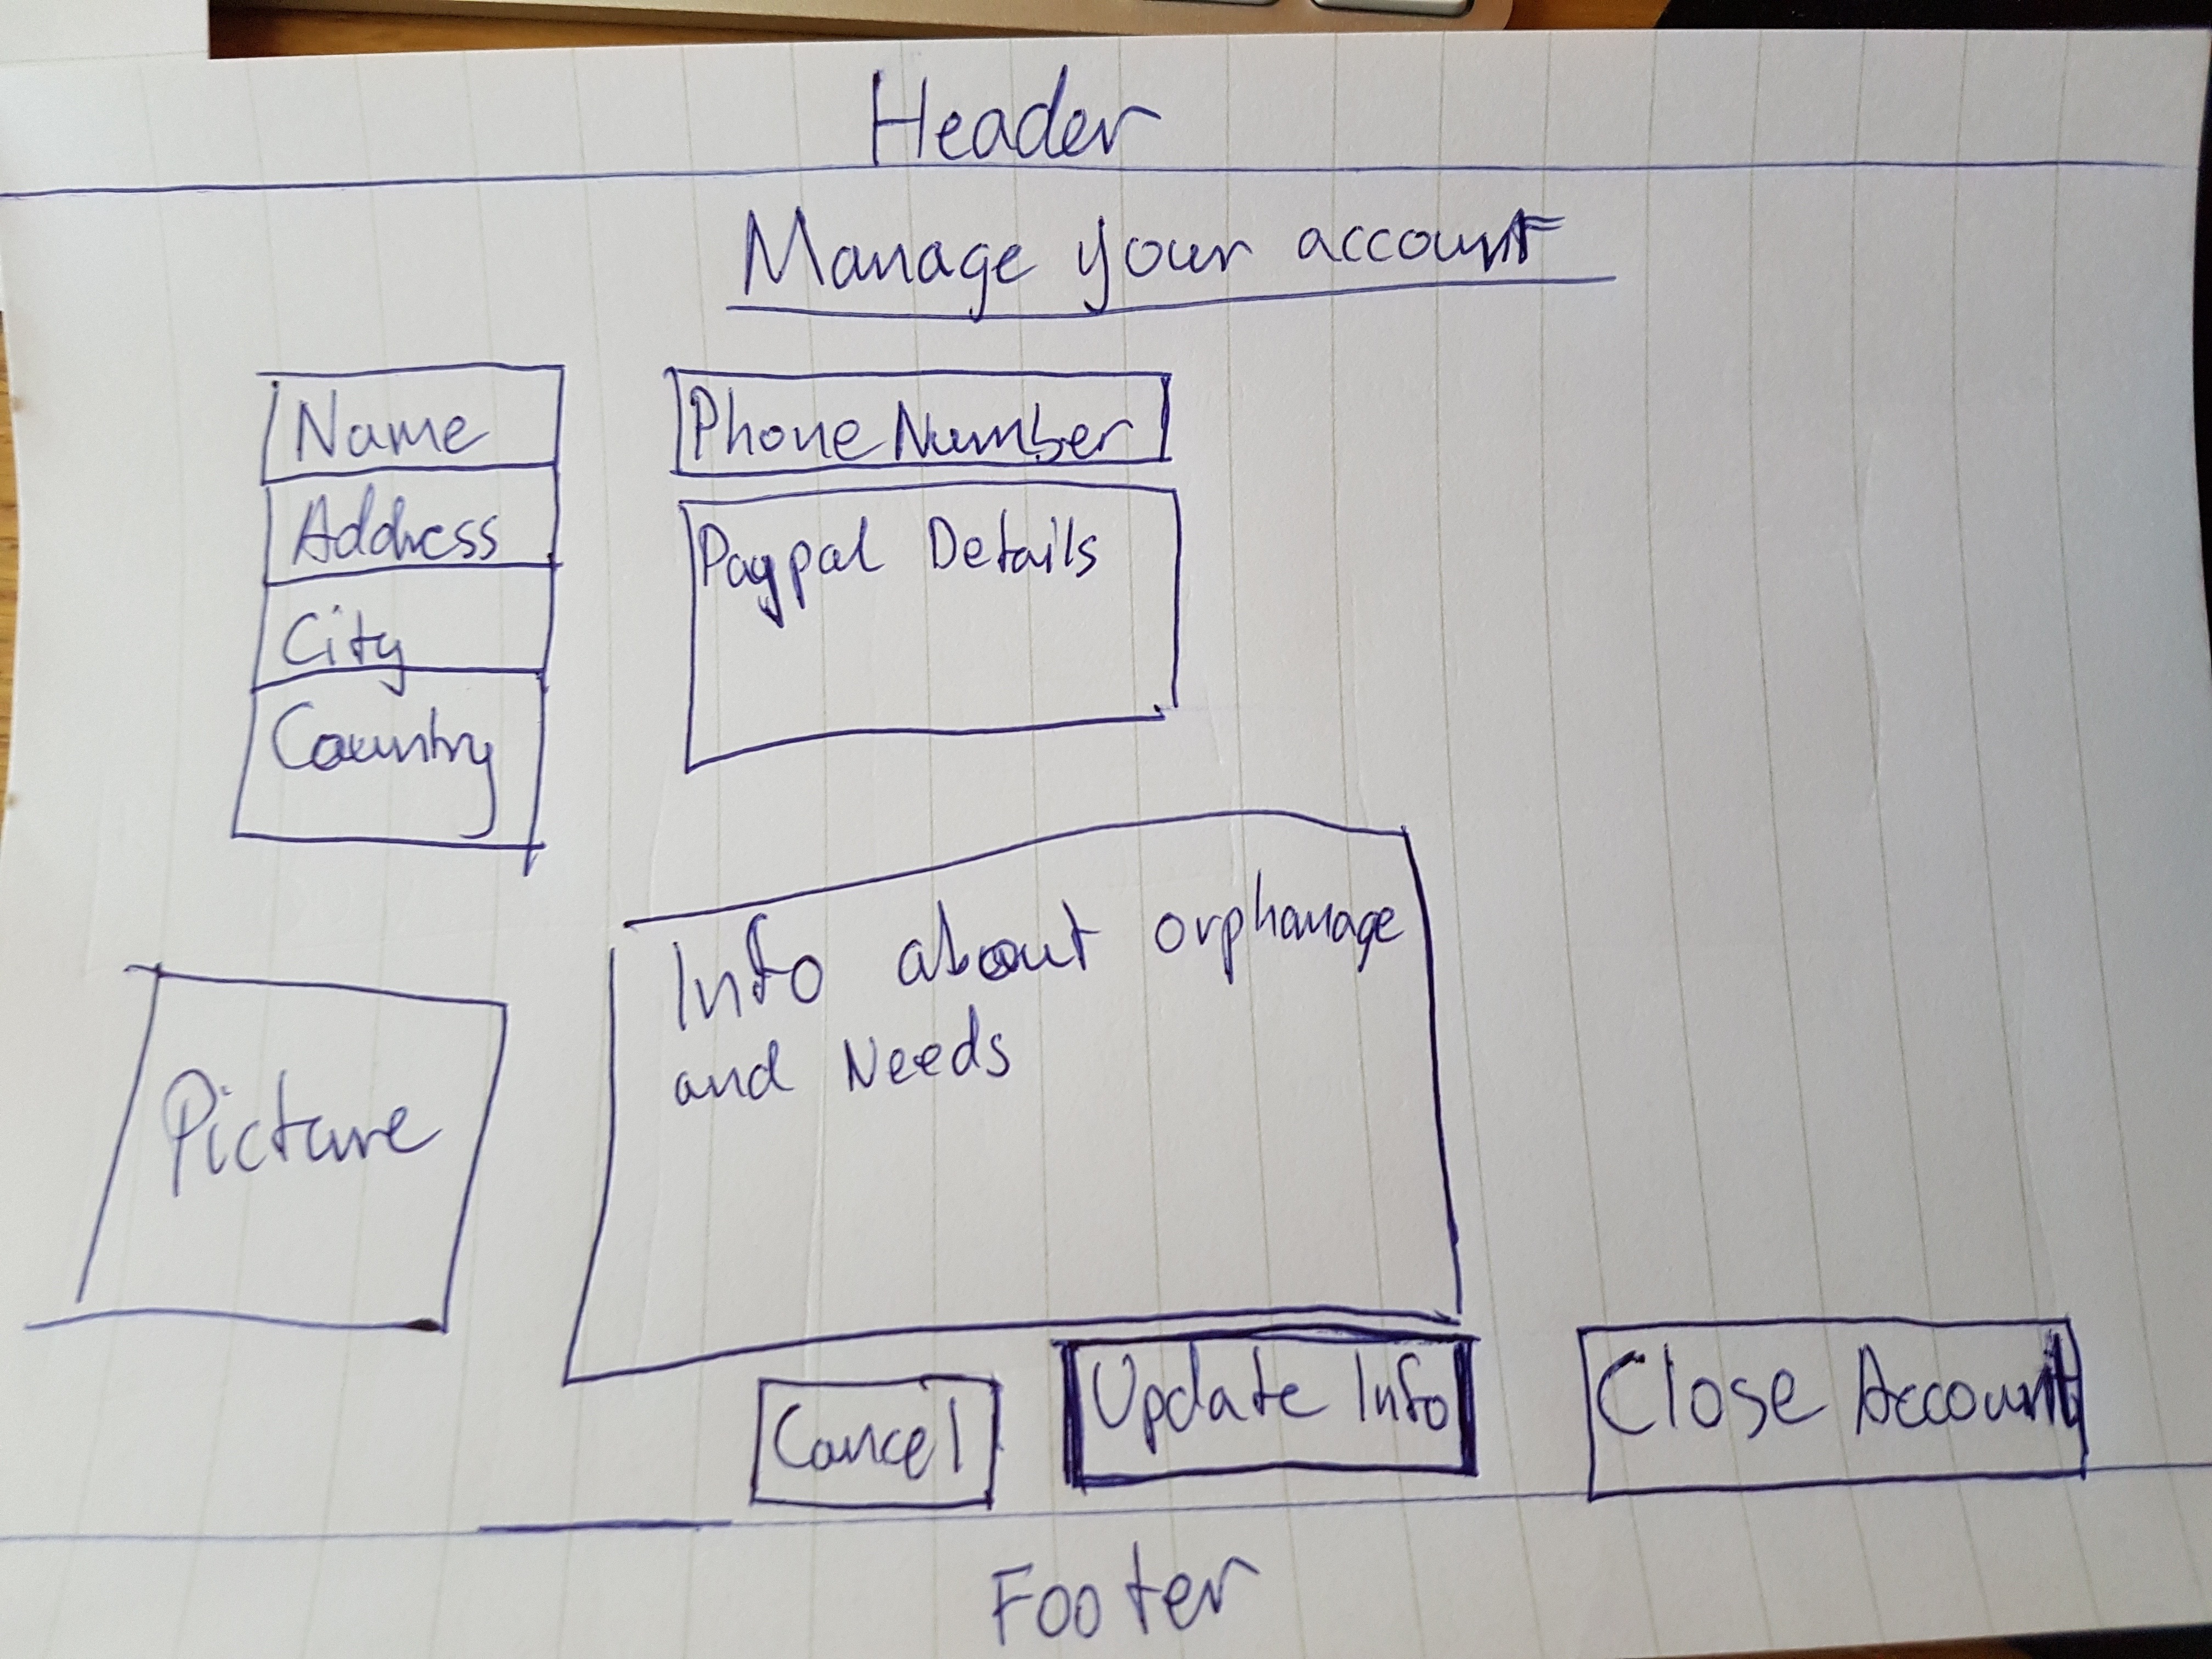 Header
Manage your account
Name
Address
City
Country
Phone Number
Paypal Details
Picture
Info about orphanage
and Needs
Cancel
Update Info
Close Account
Footer